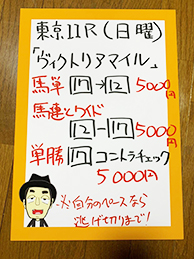 東京11R(日曜)
「ヴィクトリアマイル」
馬単 17→12 5000円
馬連とワイド
12-17 5000円
単勝 17 コントラチェック
5000円
※自分のペースなら
逃げ切りまで!